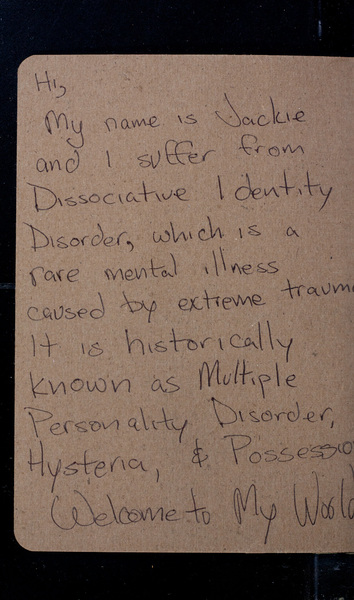 Hi,
My name is Jackie
and I suffer from
Dissociative Identity
Disorder, which is a
rare mental illness
caused by extreme traum
It is historically
known as Multiple
Personality Disorder,
Hysteria, & Possessio
Welcome to My World